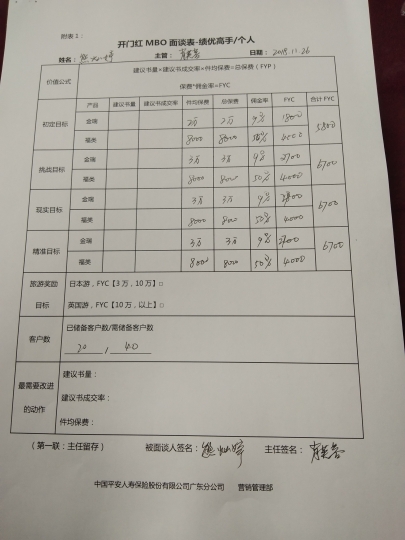 附表1：
开门红 MBO 面谈表-绩优高手/个人
姓名： 主管： 日期：2018.11.26
价值公式 建议书量×建议书成交率×件均保费=总保费（FYP）
保费*佣金率=FYC
产品 建议书量 建议书成交率 件均保费 总保费 佣金率 FYC 合计 FYC
初定目标 金瑞 2万 2万 9% 1800 5800
福英 8000 8000 50% 4000
挑战目标 金瑞 3万 3万 9% 2700 6700
福英 8000 8000 50% 4000
现实目标 金瑞 3万 3万 9% 2700 6700
福英 8000 8000 50% 4000
精准目标 金瑞 3万 3万 9% 2700 6700
福英 8000 8000 50% 4000
旅游奖励目标 日本游，FYC【3 万，10 万】□
英国游，FYC【10 万，以上】□
客户数 已储备客户数/需储备客户数
20 / 40
最需要改进的动作 建议书量：
建议书成交率：
件均保费：
（第一联：主任留存） 被面谈人签名： 主任签名：
中国平安人寿保险股份有限公司广东分公司 营销管理部